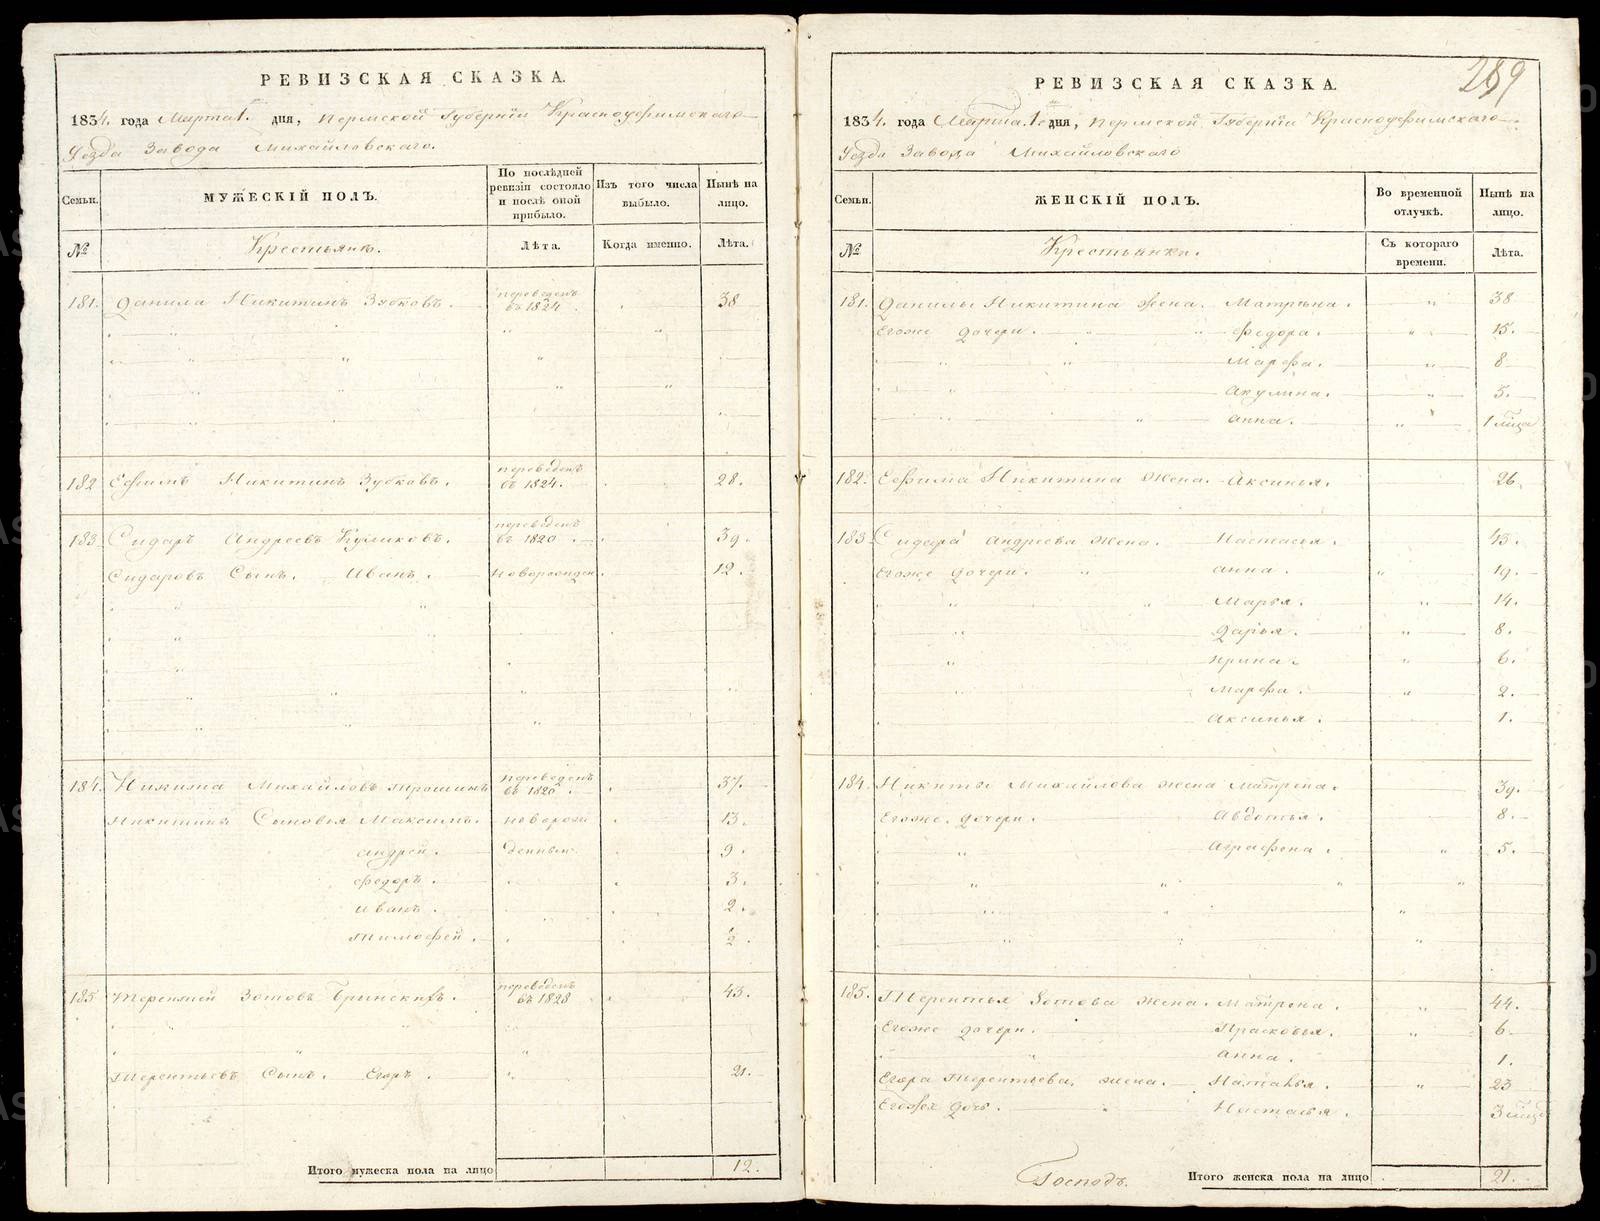 РЕВИЗСКАЯ СКАЗКА.
1834. года Марта 1. дня, Пермской Губернiи Красноуфимскаго
Уезда Завода Михайловскаго.
Семьи.
МУЖЕСКIЙ ПОЛЪ.
По послѣдней ревизiи состояло и послѣ оной прибыло.
Изъ того числа выбыло.
Нынѣ на лицо.
№
Крестьянъ.
Лѣта.
Когда именно.
Лѣта.
181. Данила Никитинъ Зубковъ. переведенъ въ 1824 38
182 Ефимъ Никитинъ Зубковъ. переведенъ въ 1824. 28.
183 Сидаръ Андреевъ Куликовъ. переведенъ въ 1820 39.
Сидаровъ Сынъ. Иванъ. новорожден 12.
184. Никита Михайловъ Трошинъ переведенъ въ 1820 37.
Никитины Сыновья Максимъ. новорож 13.
Андрей. денные 9.
Федоръ. 3.
Иванъ. 2.
Тимофей. 2.
185 Терентей Зотовъ переведенъ въ 1828 43.
Терентьевъ Сынъ. Егоръ. 21.
Итого мужеска пола на лицо 12.
289
РЕВИЗСКАЯ СКАЗКА.
1834. года Марта. 1. дня, Пермской Губернiи Красноуфимскаго
Уезда Завода Михайловскаго
Семьи.
ЖЕНСКIЙ ПОЛЪ.
Во временной отлучкѣ.
Нынѣ на лицо.
№
Крестьянки.
Съ котораго времени.
Лѣта.
181. Данилы Никитина жена. Матрена. 38
Егоже дочери. Федора. 15.
Марфа. 8
Акулина. 5.
Анна. 1
182. Ефима Никитина жена. Аксинья. 26.
183 Сидара Андреева жена. Настасья. 43.
Егоже дочери. Анна. 19.
Марья. 14.
Дарья. 8.
Ирина. 6.
Марфа. 2.
Аксинья. 1.
184. Никиты Михайлова жена Матрена. 39.
Егоже. дочери. Авдотья. 8.
Аграфена. 5.
185. Терентья Зотова жена. Матрена. 44.
Егоже дочери. Прасковья. 6
Анна. 1.
Егора Терентьева. жена. Наталья. 23
дочь. Настасья. 3
Господъ.
Итого женска пола на лицо 21.